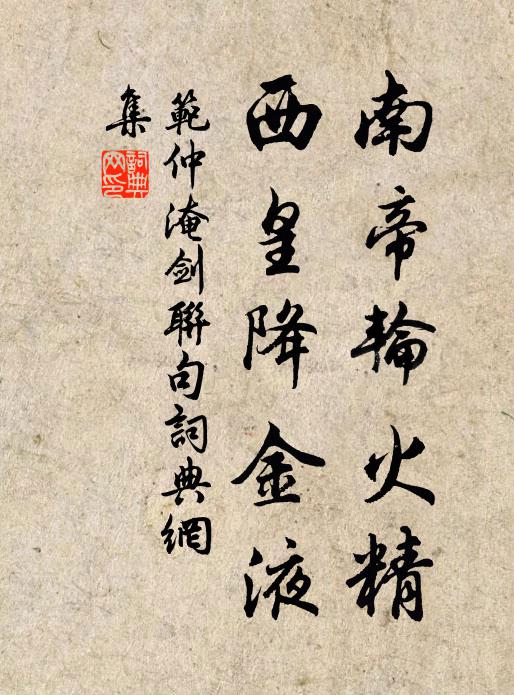 南帝輪火精
西皇降金液
範仲淹劍聯句詞典網
集
詞典网印